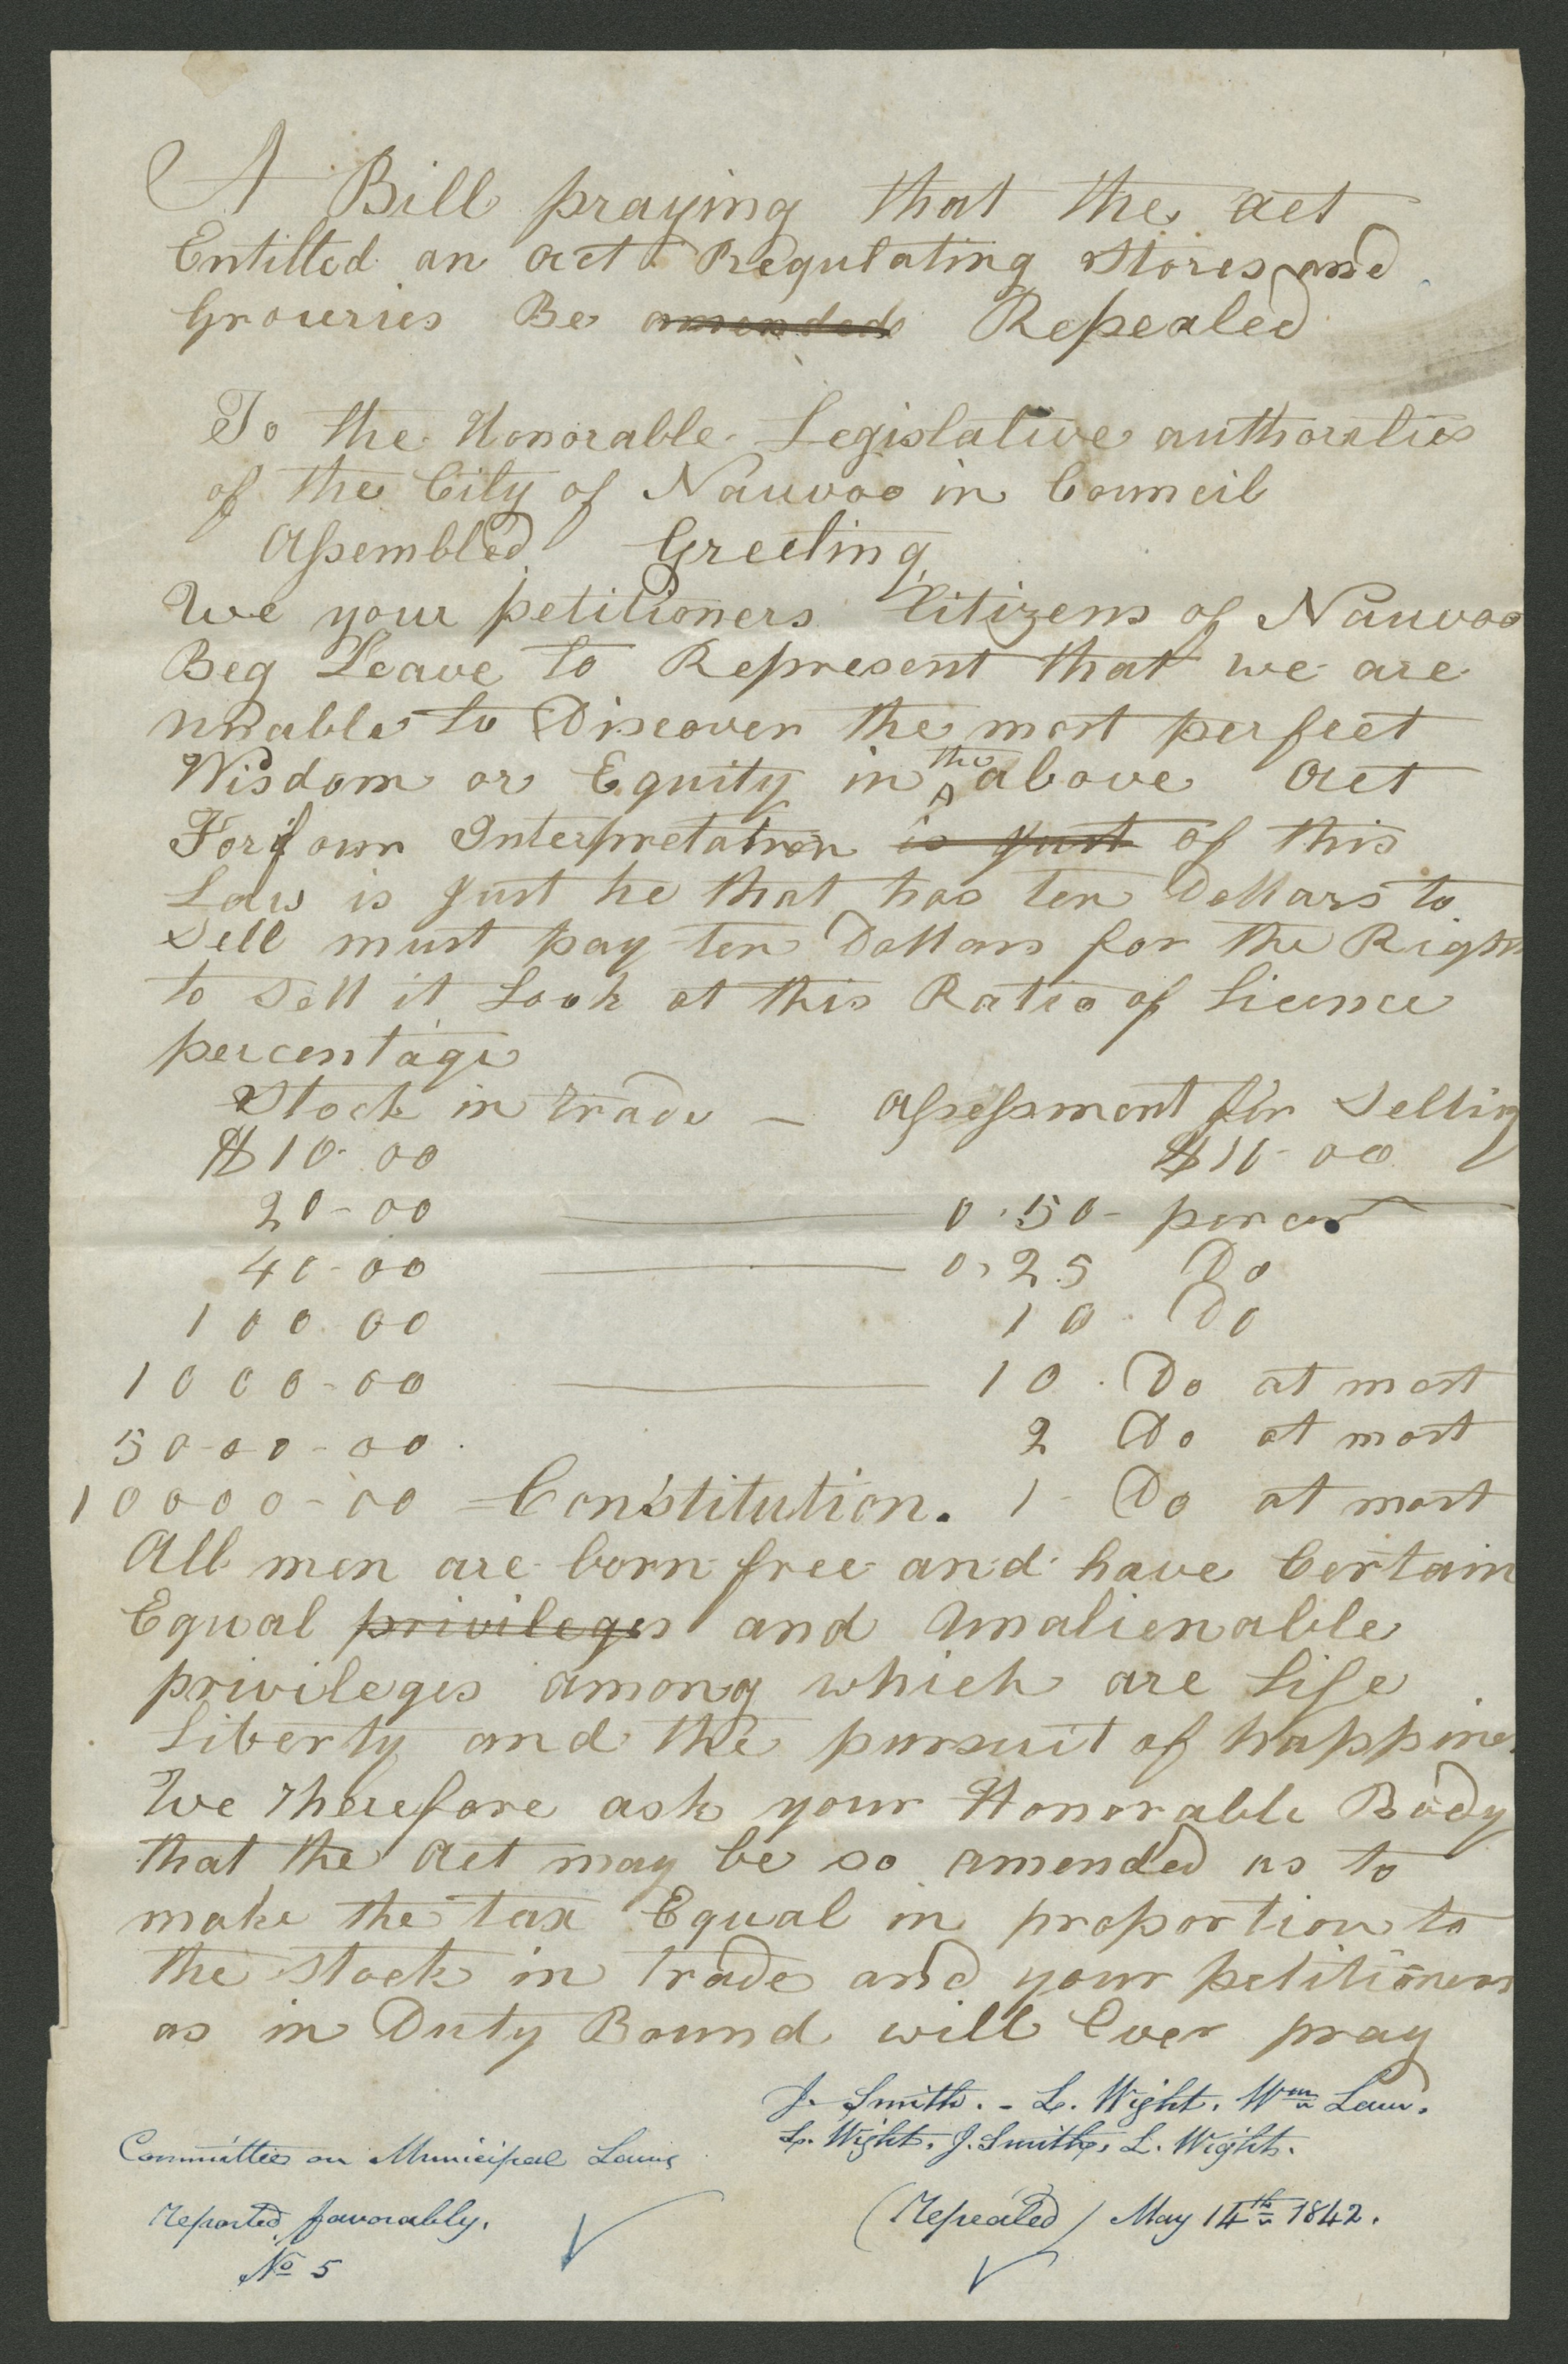 A Bill praying that the act
Entitled an act Regulating Stores and
Groceries Be amended Repealed
To the Honorable Legislative authoraties
of the City of Nauvoo in Council
Assembled Greeting
We your petitioners Citizens of Nauvoo
Beg Leave to Represent that we are
unable to Discover the most perfect
Wisdom or Equity in the above act
For if our Interpretation is just of this
Law is just he that has ten Dollars to
Sell must pay ten Dollars for the Right
to Sell it Look at this Ratio of Licence
percentage
Stock in trade — assessment for Selling
$10-00 $10-00
20-00 0.50- per cent
40-00 0,25 Do
100-00 10 Do
1000-00 10 Do at most
5000-00 2 Do at most
10000-00 Constitution. 1 Do at most
All men are born free and have Certain
Equal privileges and Unalienable
privileges among which are Life
Liberty and the pursuit of happines
We therefore ask your Honorable Body
that the act may be so amended as to
make the tax Equal in proportion to
the Stock in trade and your petitioners
as in Duty Bound will Ever pray
J. Smith. - L. Wight. Wm Law.
L. Wight. J. Smith, L. Wight.
Committee on Municipal Laws
Reported favorably.
No 5
(Repealed) May 14th 1842.